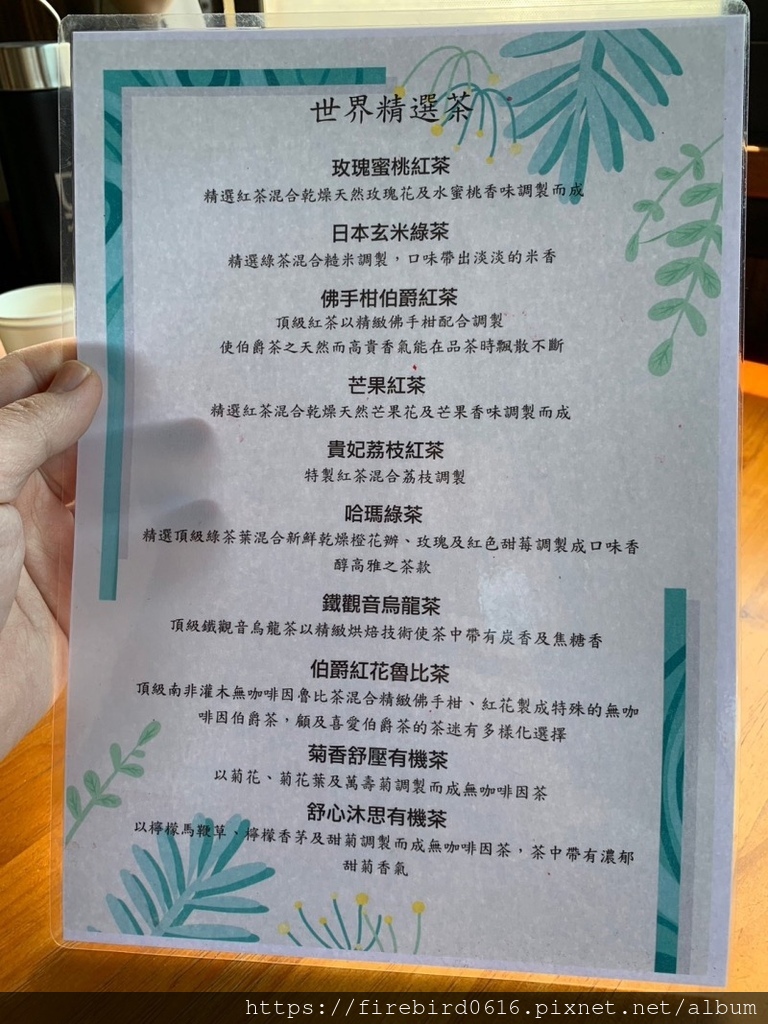 世界精選茶
玫瑰蜜桃紅茶
精選紅茶混合乾燥天然玫瑰花及水蜜桃香味調製而成
日本玄米綠茶
精選綠茶混合糙米調製，口味帶出淡淡的米香
佛手柑伯爵紅茶
頂級紅茶以精緻佛手柑配合調製
使伯爵茶之天然而高貴香氣能在品茶時飄散不斷
芒果紅茶
精選紅茶混合乾燥天然芒果花及芒果香味調製而成
貴妃荔枝紅茶
特製紅茶混合荔枝調製
哈瑪綠茶
精選頂級綠茶葉混合新鮮乾燥橙花瓣、玫瑰及紅色甜莓調製成口味香
醇高雅之茶款
鐵觀音烏龍茶
頂級鐵觀音烏龍茶以精緻烘焙技術使茶中帶有炭香及焦糖香
伯爵紅花魯比茶
頂級南非灌木無咖啡因魯比茶混合精緻佛手柑、紅花製成特殊的無咖
啡因伯爵茶，顧及喜愛伯爵茶的茶迷有多樣化選擇
菊香舒壓有機茶
以菊花、菊花葉及萬壽菊調製而成無咖啡因茶
舒心沐思有機茶
以檸檬馬鞭草、檸檬香茅及甜菊調製而成無咖啡因茶，茶中帶有濃郁
甜菊香氣
https://firebird0616.pixnet.net/album